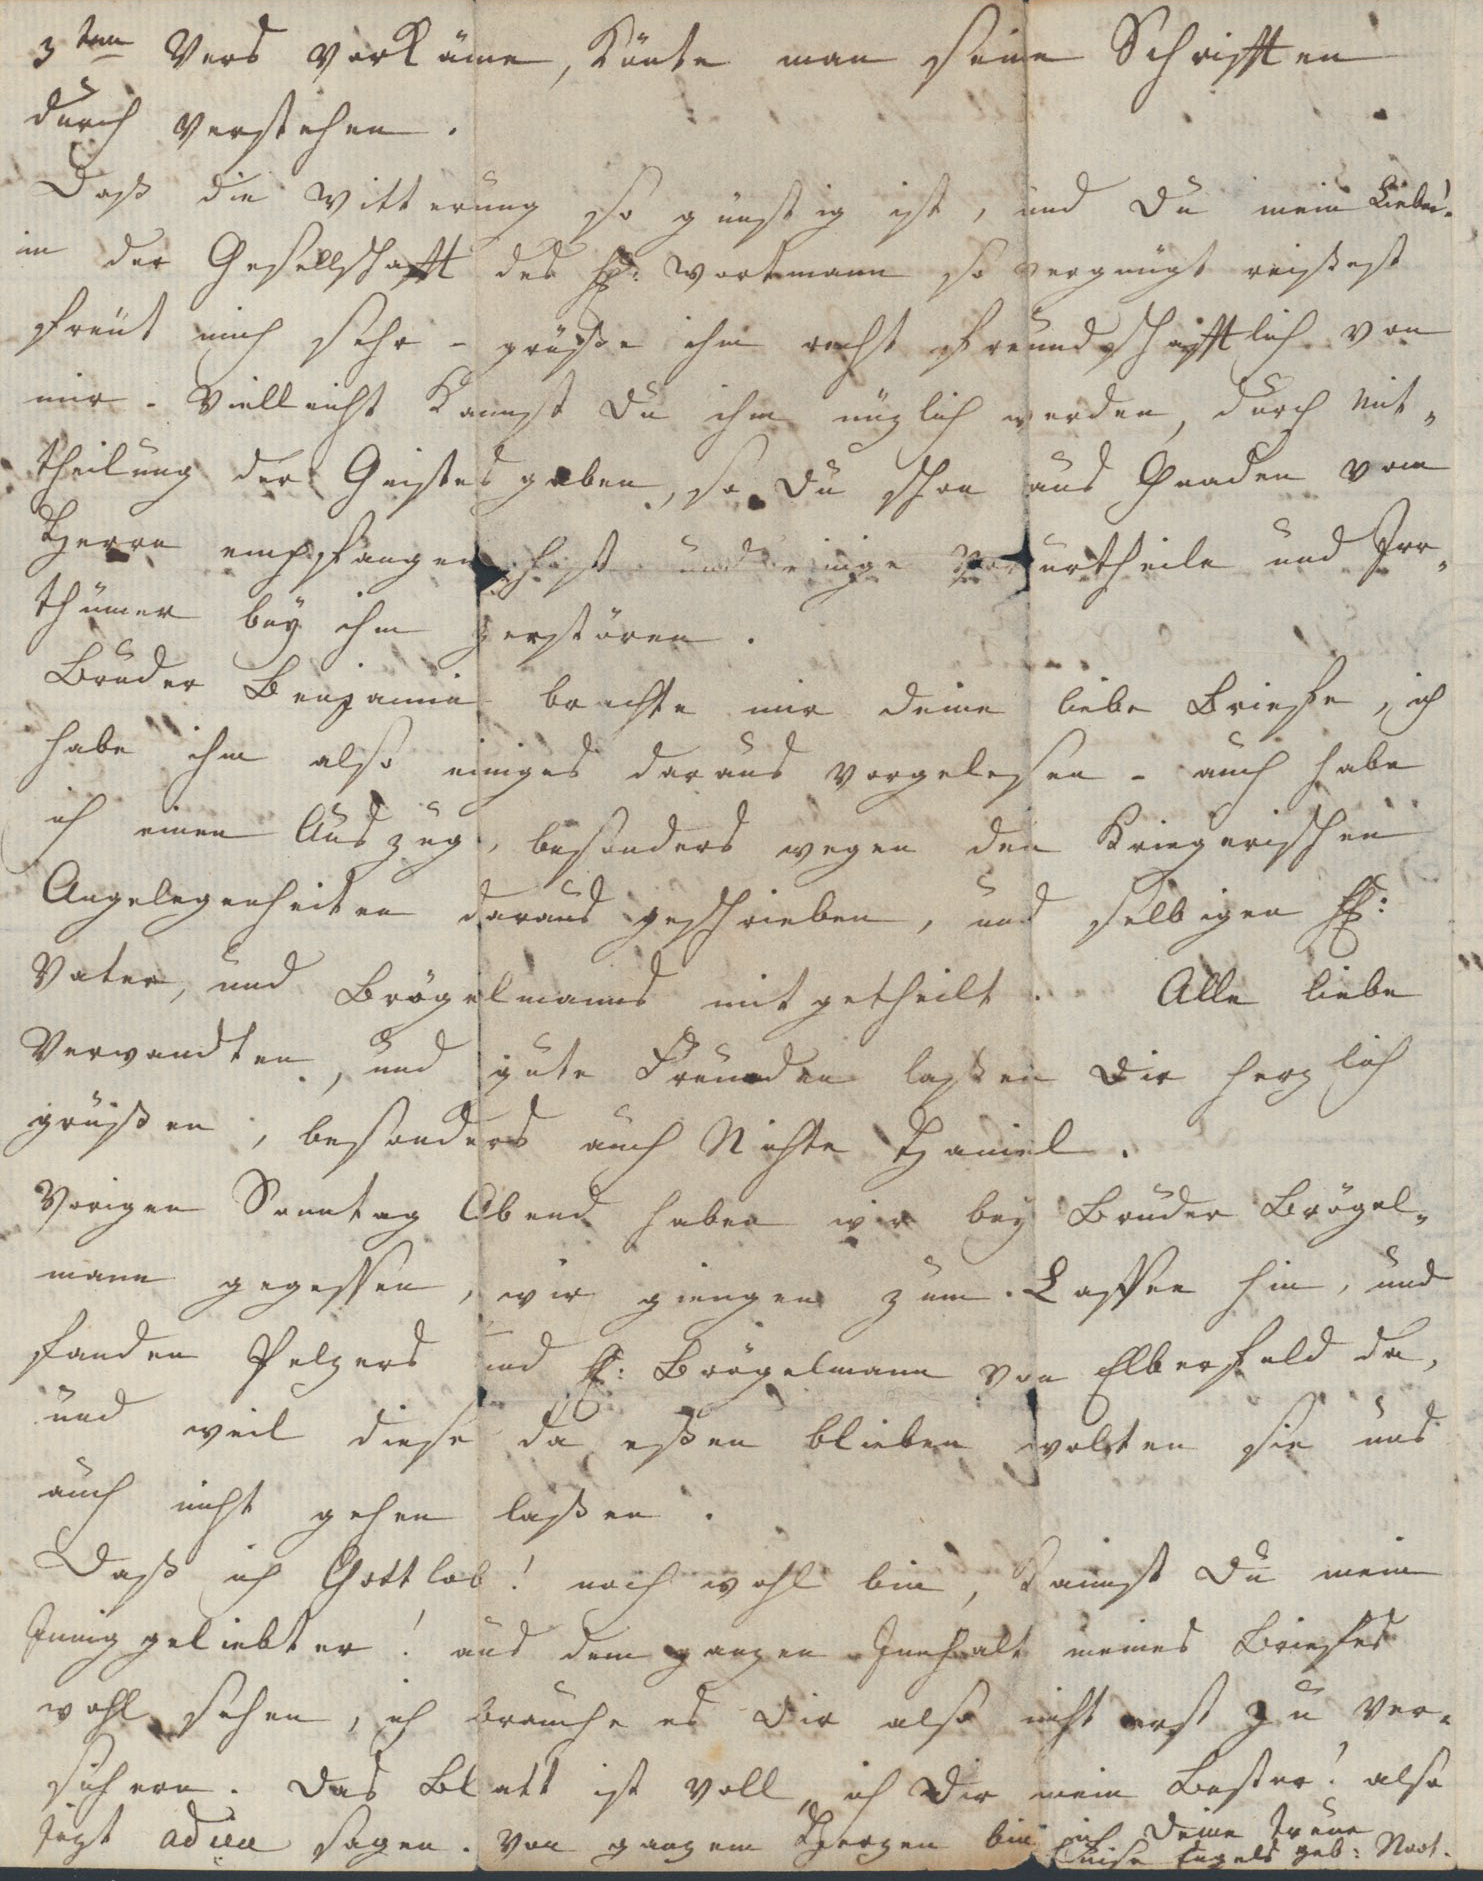 3ten Vers vorkäme, könte man seine Schrifften
durch verstehen.
Daß die Witterung so günstig ist, und Du mein Lieber!
in der Gesellschafft des H: Wortmann so vergnügt reißest
freut mich sehr - grüße ihn recht freundschafftlich von
mir. Vielleicht kannst Du ihm nüzlich werden, durch Mit-
theilung der Geistes gaben, so Du schon aus Gnaden vom
Herrn empfangen hast und einige Vorurtheile und Irr-
thümer bey ihm zerstören.
Bruder Benjamin brachte mir deine liebe Briefe, ich
habe ihm also einiges daraus vorgelesen - auch habe
ich einen Auszug, besonders wegen den Kriegerischen
Angelegenheiten daraus geschrieben, und selbigen H:
Vater, und Brögelmanns mitgetheilt. Alle liebe
Verwandten, und gute Freunden laßen Dir herzlich
grüßen, besonders auch Nichte Haniel.
Vorigen Sonntag Abend haben wir bey Bruder Brögel-
mann gegessen, wir giengen zum Caffee hin, und
fanden Pelzers und H: Brögelmann von Elberfeld da,
und weil diese da eßen blieben wolten sie uns
auch nicht gehen laßen.
Daß ich Gottlob! noch wohl bin, kannst Du mein
Innig geliebter! aus dem ganzen Innhalt meines Briefes
wohl sehen, ich brauche es Dir also nicht erst zu ver-
sichern. Das Blatt ist voll, ich Dir mein Bester! also
jezt adieu sagen. Von ganzem Herzen bin ich Deine treue
Luise Engels geb: Noot.